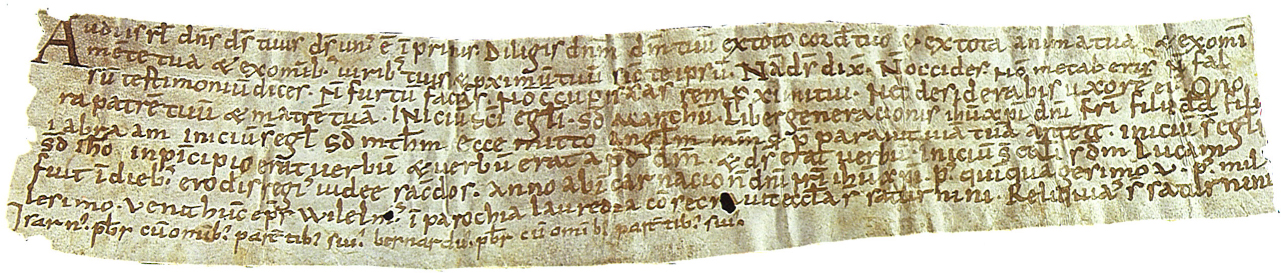 Audi isrl dns ds tuus ds unus e i prius. Diligis dnm dm tuu ex toto corde tuo & ex tota anima tua & ex omi
mete tua & ex omib; virib; tuis & pximu tuu sic te ipsu. Nads dix. Noccides. No metaberis N fal
su testimoniu dices. N furtu facias. Noccupiscas rem pximi tui. Nec desiderabis uxore ei. Ono
ra patre tuu & matre tua. Iniciu sci egli. sd Marchu. Liber generacionis ihu xpi dni fri filii dd filii
iabraam iniciu segli sd mthm ecce mitto anglm mm q pparavit via tua antete. iniciu s egli
sd iho inpicipio erat verbu & verbu erat apd dm. & ds erat verbu. Iniciu s eali sdm Lucam
fuit i dieb; erodis regi iudee sacdos. Anno ab icarnacion dni nri ihu xpi. p. quiquagesimo v. p. mil
lesimo. Venit hunc eps Wilelm; i parochia lauredia cosecravit ecclas saturnini. Reliquia s saturnini
Isarn. pbr cu omib; paretib; sui; bernardu. pbr cu omib; paretib; sui;